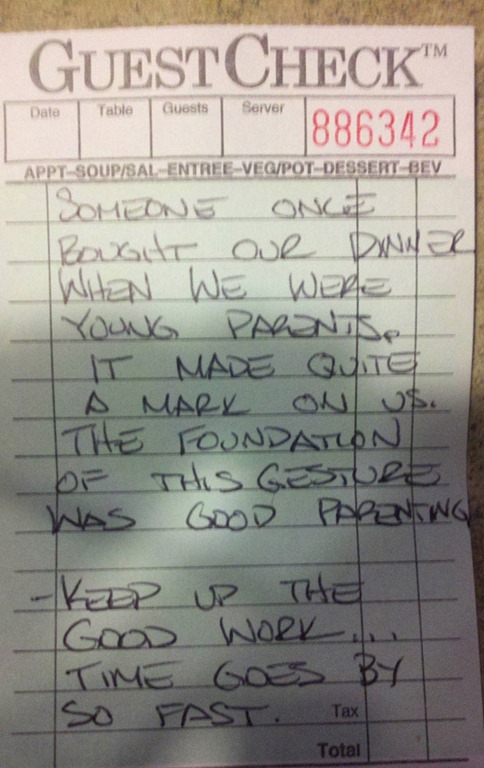 GUESTCHECK™
Date Table Guests Server 886342
APPT–SOUP/SAL–ENTREE–VEG/POT–DESSERT–BEV
SOMEONE ONCE
BOUGHT OUR DINNER
WHEN WE WERE
YOUNG PARENTS.
IT MADE QUITE
A MARK ON US.
THE FOUNDATION
OF THIS GESTURE
WAS GOOD PARENTING
- KEEP UP THE
GOOD WORK...
TIME GOES BY
SO FAST. Tax
Total